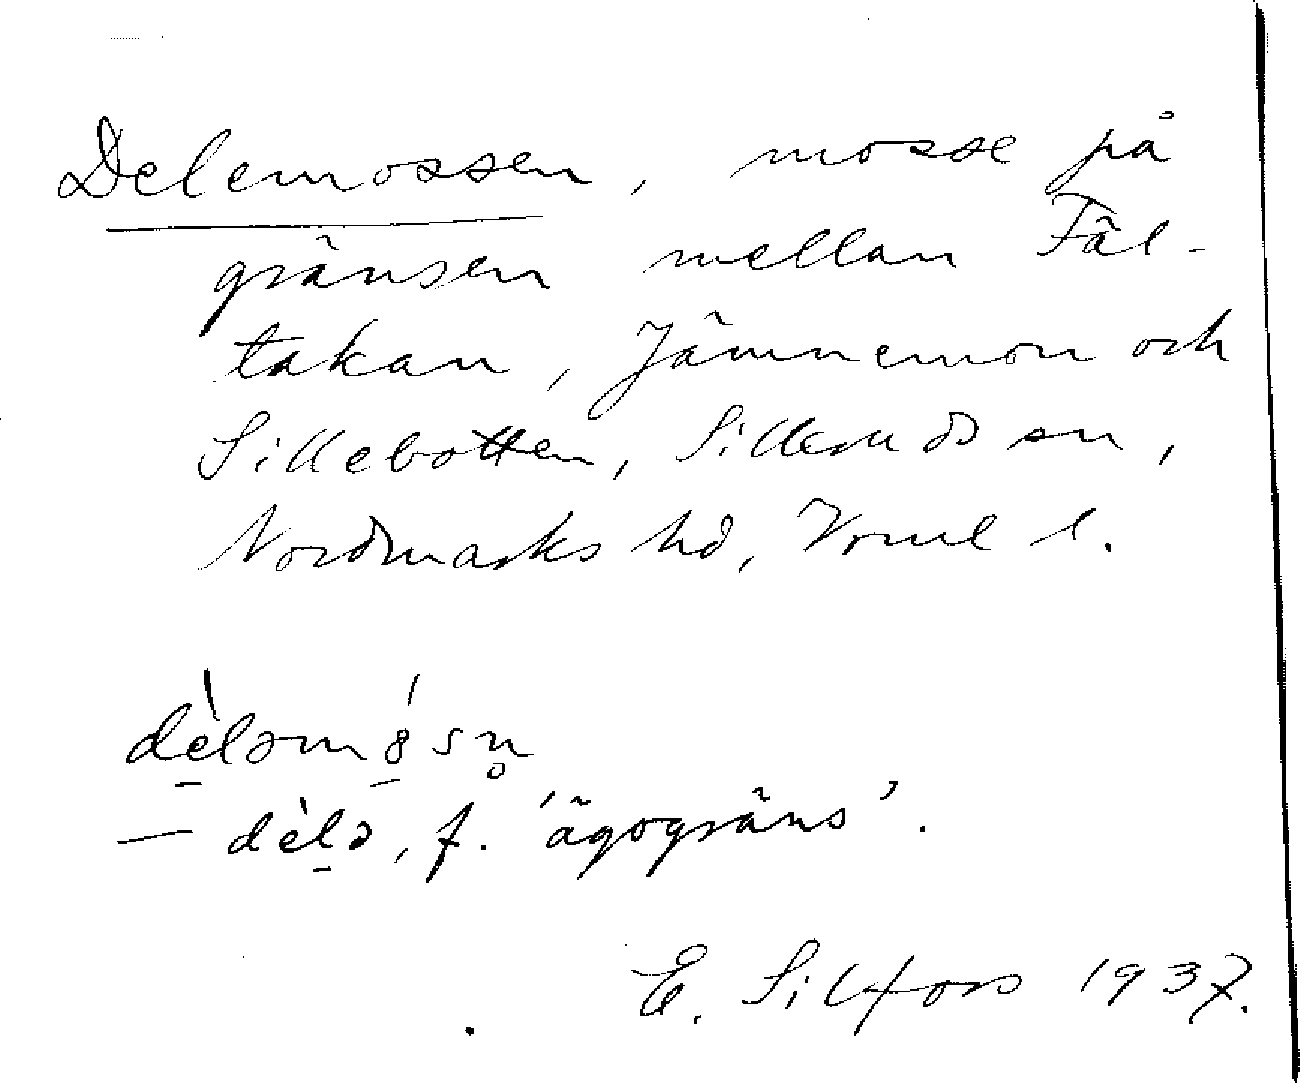 Delemossen, mosse på
gränsen mellan Fäl-
takan, Jämnemon och
Sillebotten, Sillerud sn,
Nordmarks hd, Vrml l.
dèləmósn̥
— dèlə, f. 'ägogräns'.
E. Silfors 1937.